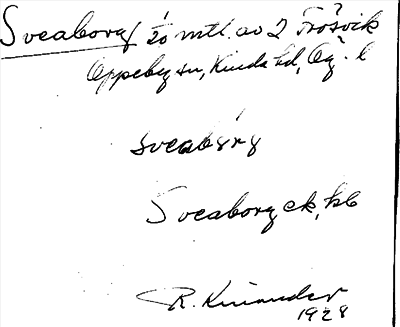 Sveaborg 1/20 mtl. av 2 Frösvik
Oppeby sn, Kinda hd, Ög. l
sveabårj
Sveaborg ek, kb
R. Kinander
1928